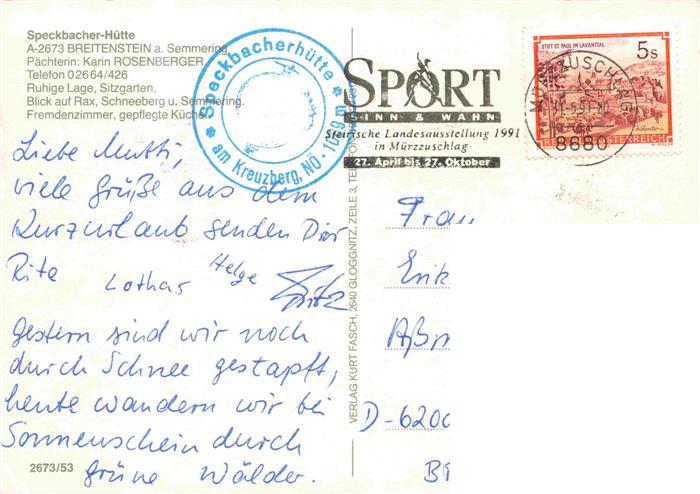 Speckbacher-Hütte
A-2673 BREITENSTEIN a. Semmering
Pächterin: Karin ROSENBERGER
Telefon 0 26 64/426
Ruhige Lage, Sitzgarten,
Blick auf Rax, Schneeberg u. Semmering.
Fremdenzimmer, gepflegte Küche.
* Speckbacherhütte *
am Kreuzberg, NÖ · 1089 m
SPORT
SINN & WAHN
Steirische Landesausstellung 1991
in Mürzzuschlag
27. April bis 27. Oktober
STIFT ST. PAUL IM LAVANTTAL
5 S
MÜRZZUSCHLAG
8680
REPUBLIK ÖSTERREICH
Liebe Mutti,
viele Grüße aus dem
Kurzurlaub senden Dir
Rita Lothar Helge Fritz
Gestern sind wir noch
durch Schnee gestapft,
heute wandern wir bei
Sonnenschein durch
grüne Wälder.
2673/53
VERLAG KURT FASCH, 2640 GLOGGNITZ, ZEILE 3,
Frau
Erik
Aßm
D-6200